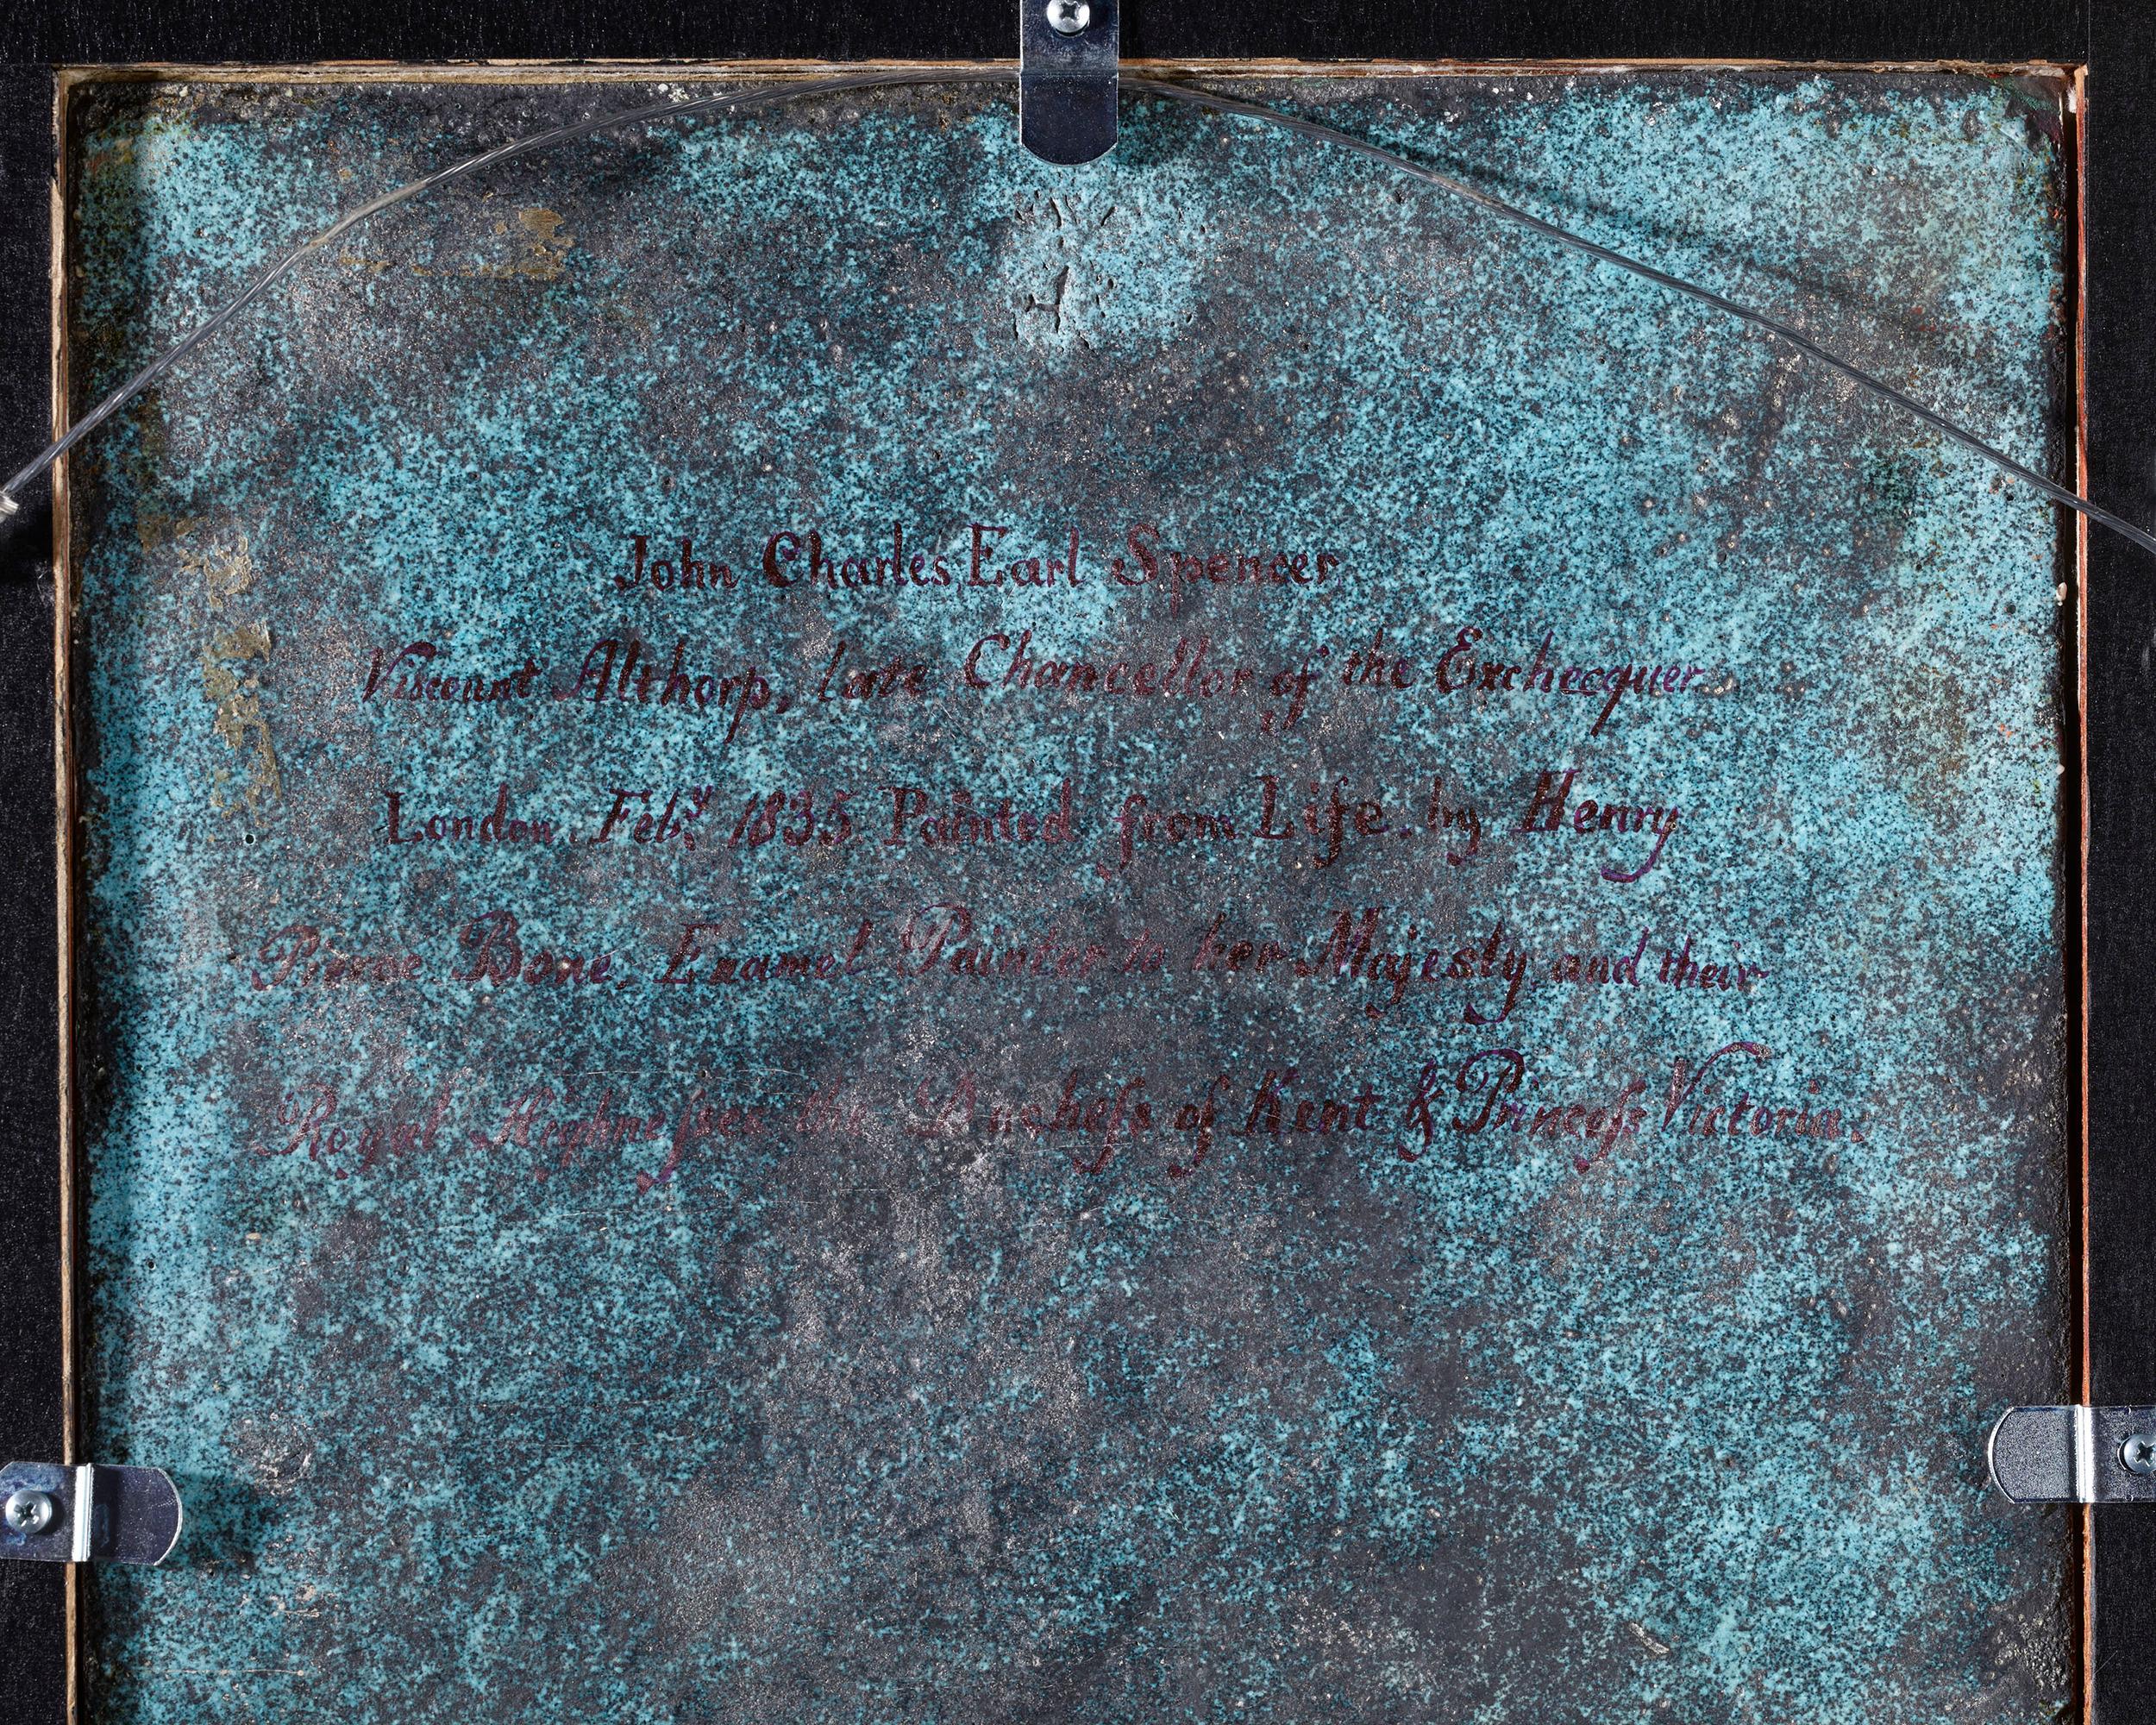 John Charles Earl Spencer
Viscount Althorp, late Chancellor of the Exchecquer
London Feb.y 1835 Painted from Life by Henry
Pierce Bone, Enamel Painter to her Majesty and their
Royal Highneſses the Ducheſs of Kent & Princeſs Victoria.